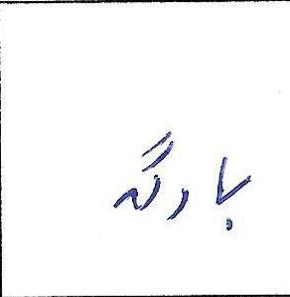 بارگه